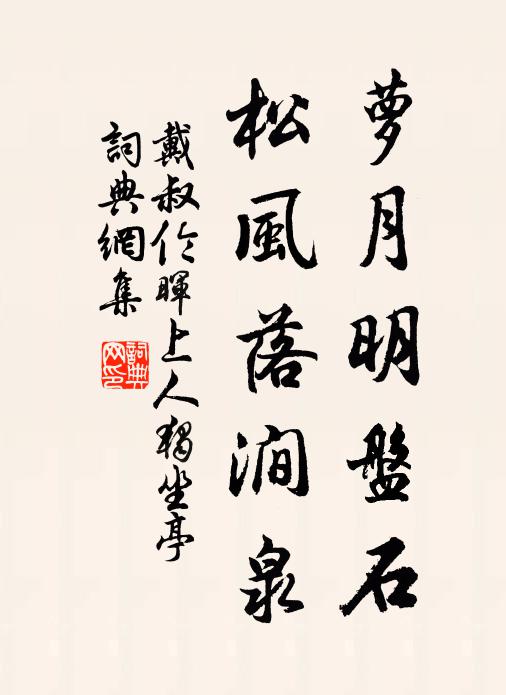 萝月明盤石
松風落澗泉
戴叔伦暉上人獨坐亭
詞典網集
詞典
网印